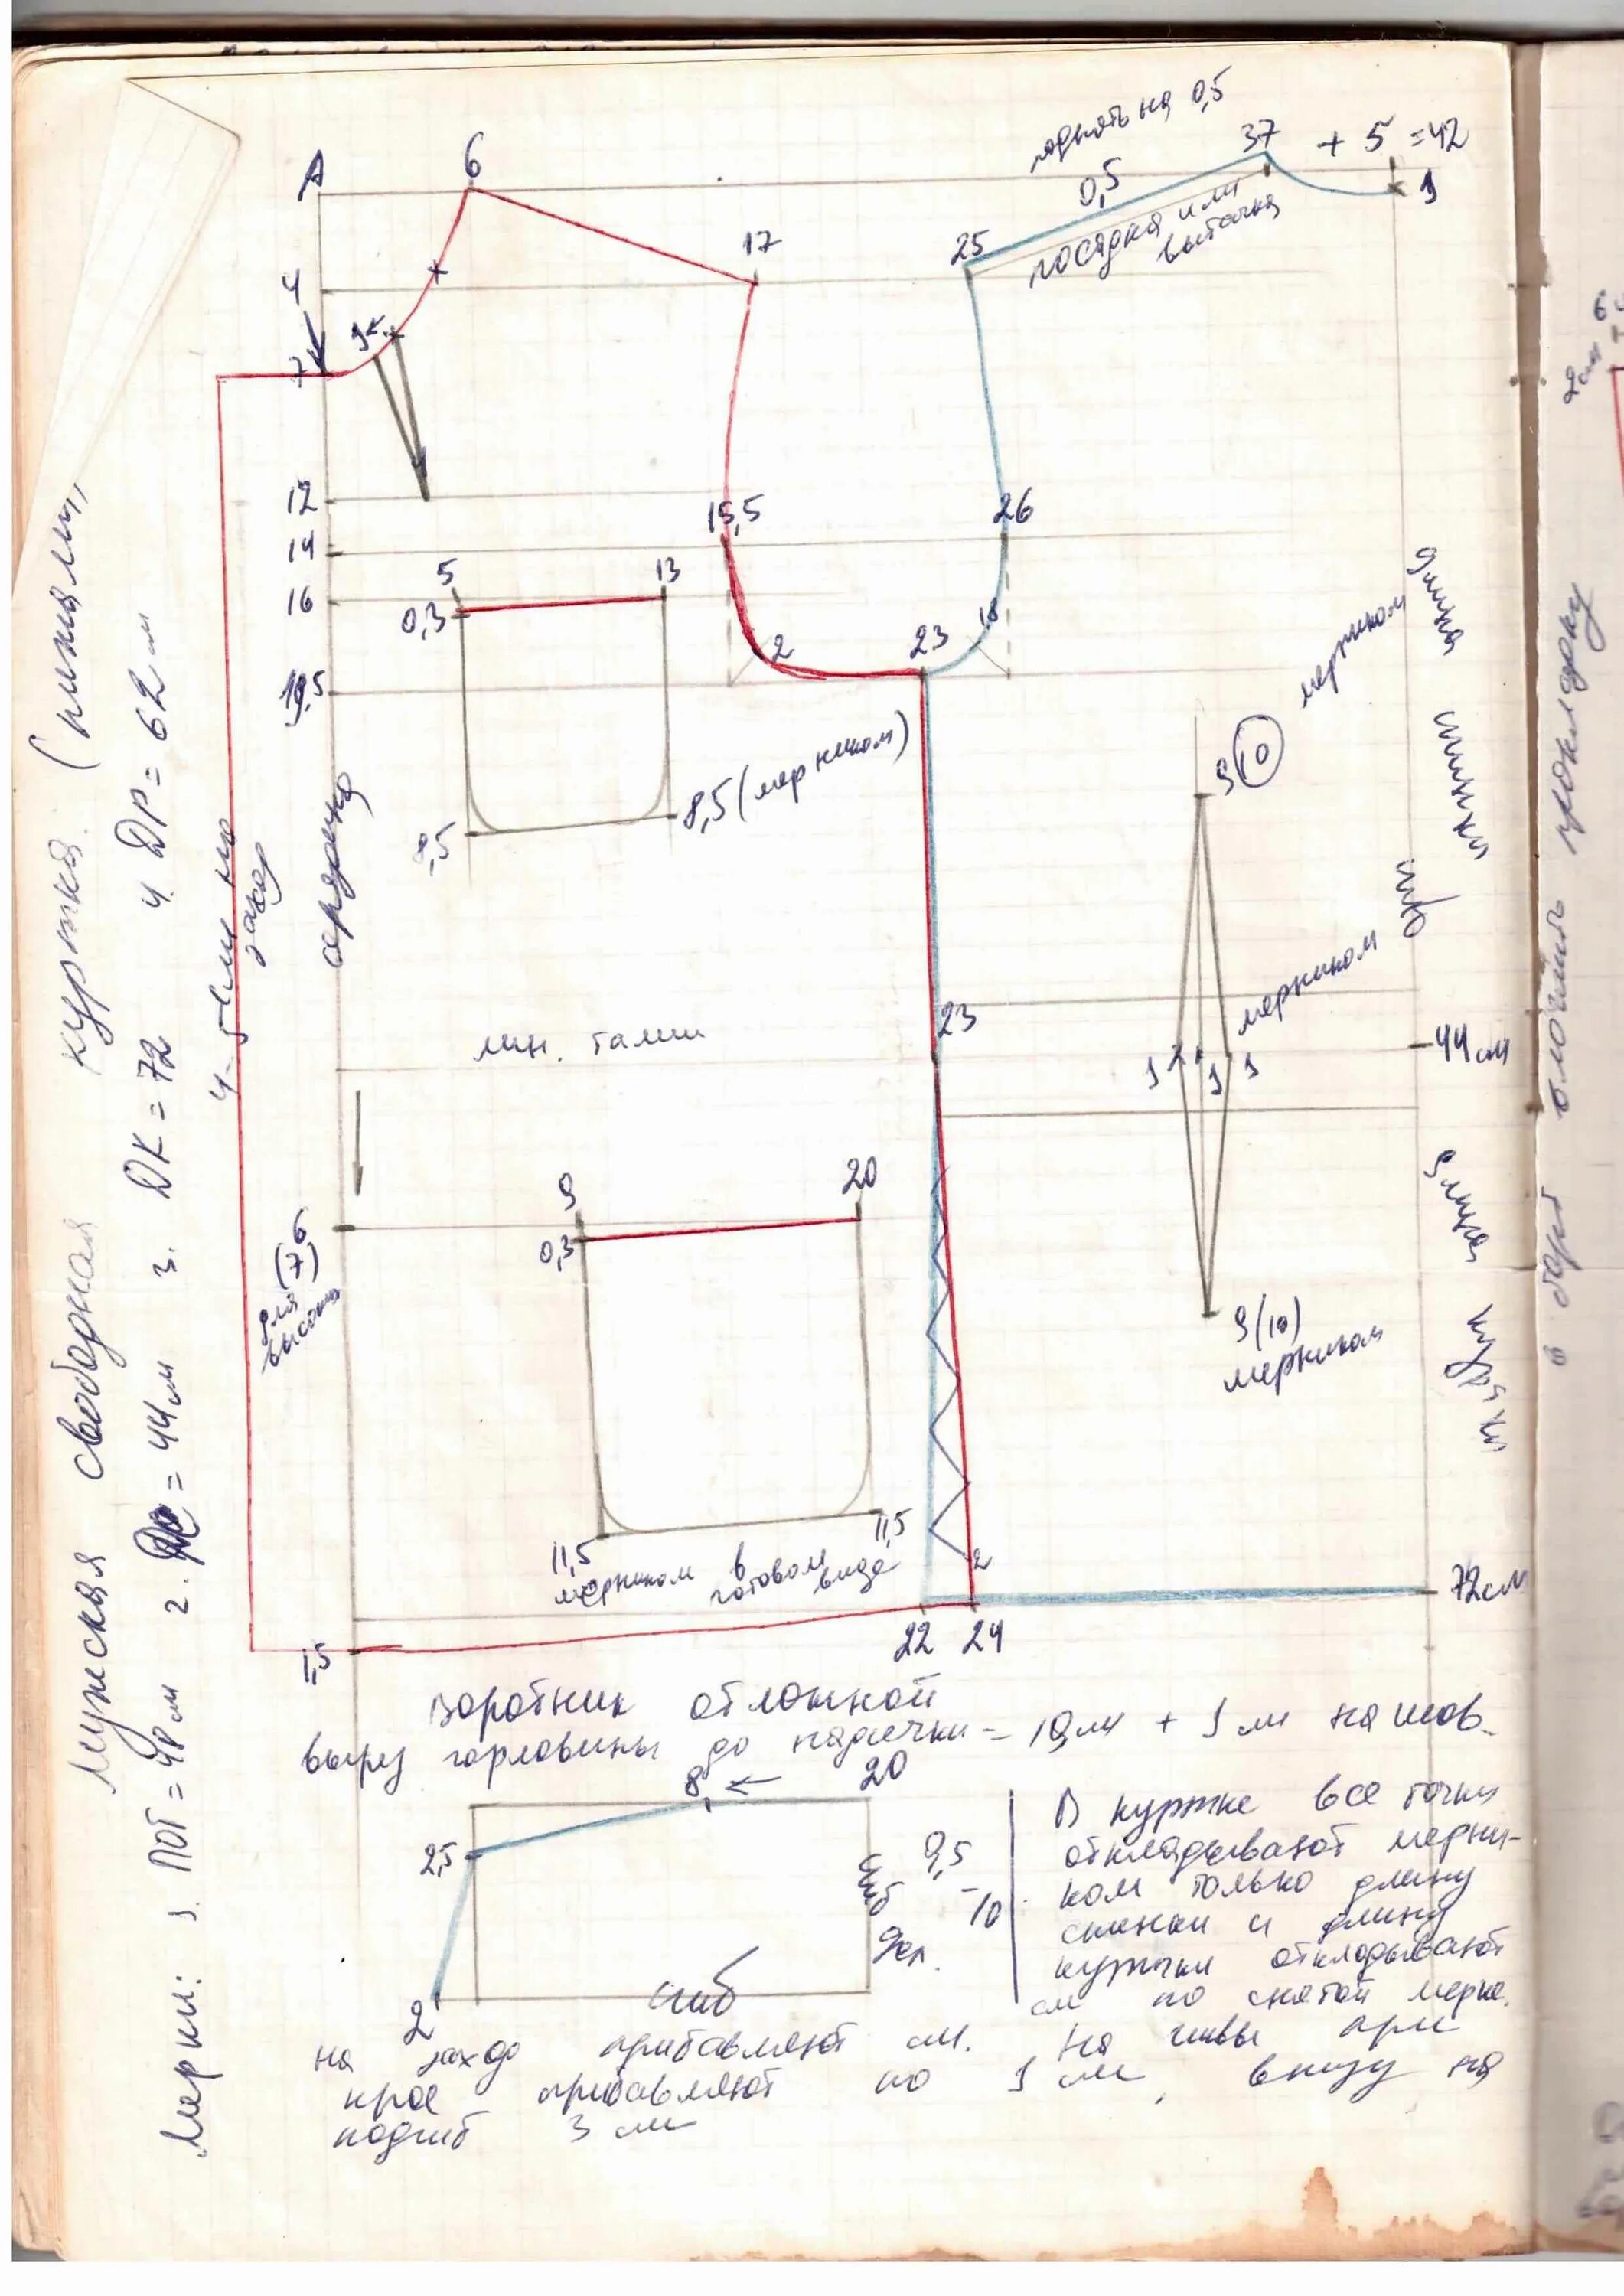 Мужская свободная куртка (пижам,
Мерки: 1. ПОГ = 48 см 2. = 44 см 3. ДК = 72 4. ДР = 62 см
4-5 см на заход
середина
А
6
17
поднять на 0,5
0,5
37 + 5 = 42
1
25
посадка или
вытачка
4
7
1
12
14
16
15,5
26
5
13
0,3
2
23
18
19,5
8,5
8,5 (мерником)
9 (10)
мерником
длина
спинки
23
лин. талии
1 1 1
мерником
44 см
6
(7)
для
высоких
9
20
0,3
длина
куртки
9 (10)
мерником
11,5
11,5
мерником в
готовом виде
2
72 см
22 24
1,5
Воротник отложной
вырез горловины до надсечки - 19 см + 1 см на шов.
8 ← 20
2,5
9,5
-10
сгиб
дол.
сгиб
2
В куртке все точки
откладывают мерни-
ком только длину
спинки и длину
куртки откладывают
см по снятой мерке.
на заход прибавляют см. На швы при
крое прибавляют по 1 см, внизу на
подгиб 3 см
2 см
6
в борт вложить прокладку